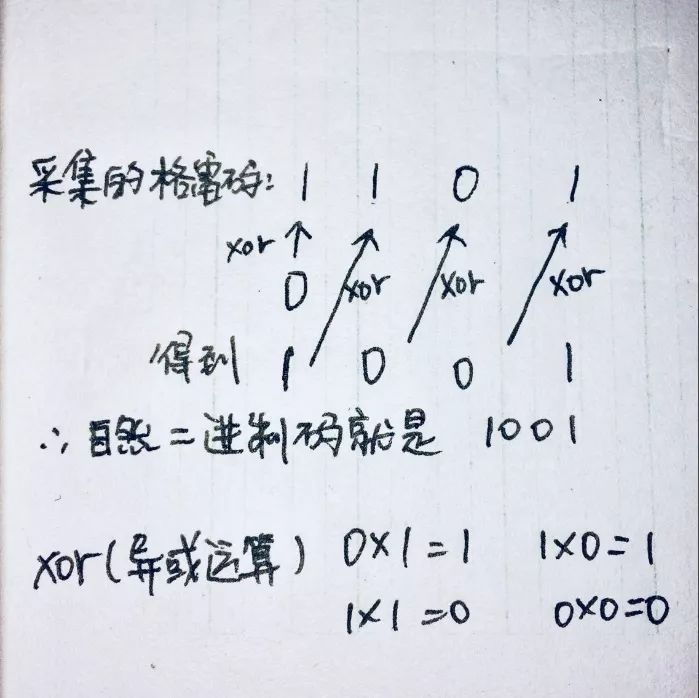 采集的格雷码: 1 1 0 1
xor
0 xor xor xor
得到 1 0 0 1
∴ 自然二进制码就是 1001
xor(异或运算) 0×1=1 1×0=1
1×1=0 0×0=0